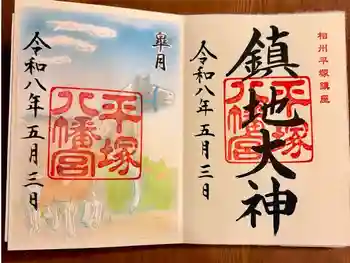 相州平塚鎮座
鎮地大神
平塚
八幡宮
令和八年五月三日
皐月
平塚
八幡宮
令和八年五月三日